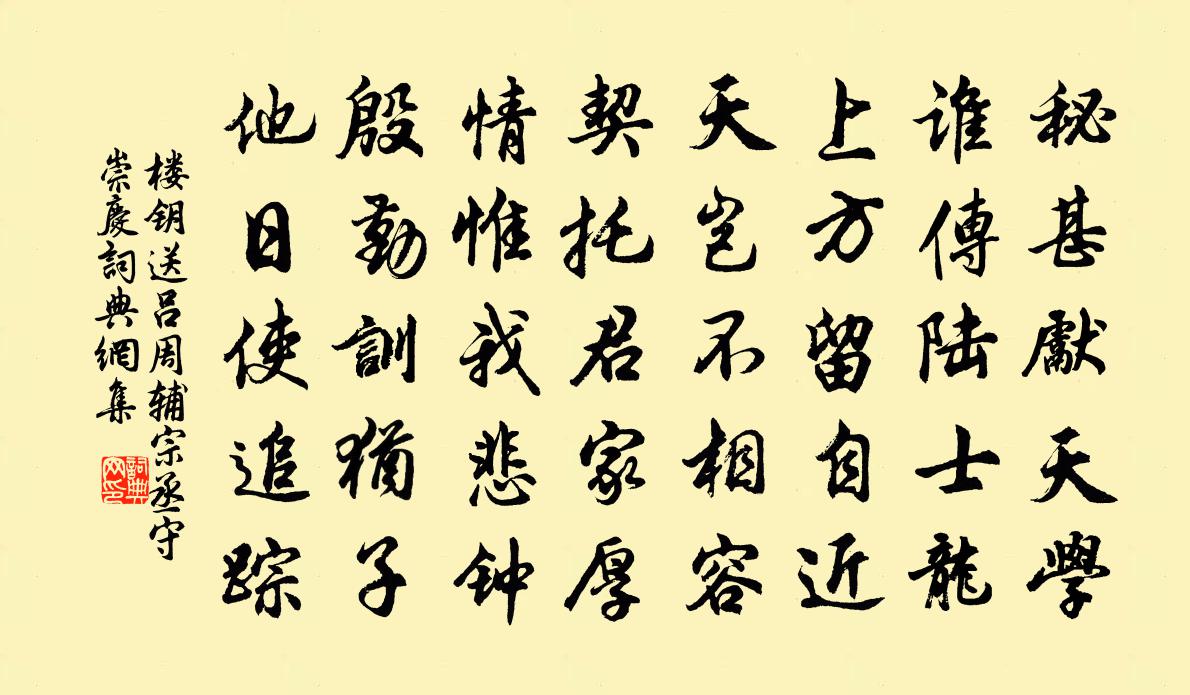 秘甚獻天學
誰傳陆士龍
上方留自近
天岂不相容
契托君家厚
情惟我悲钟
殷勤訓猶子
他日使追踪
楼钥送吕周辅宗丞守
崇慶詞典網集
詞典网印